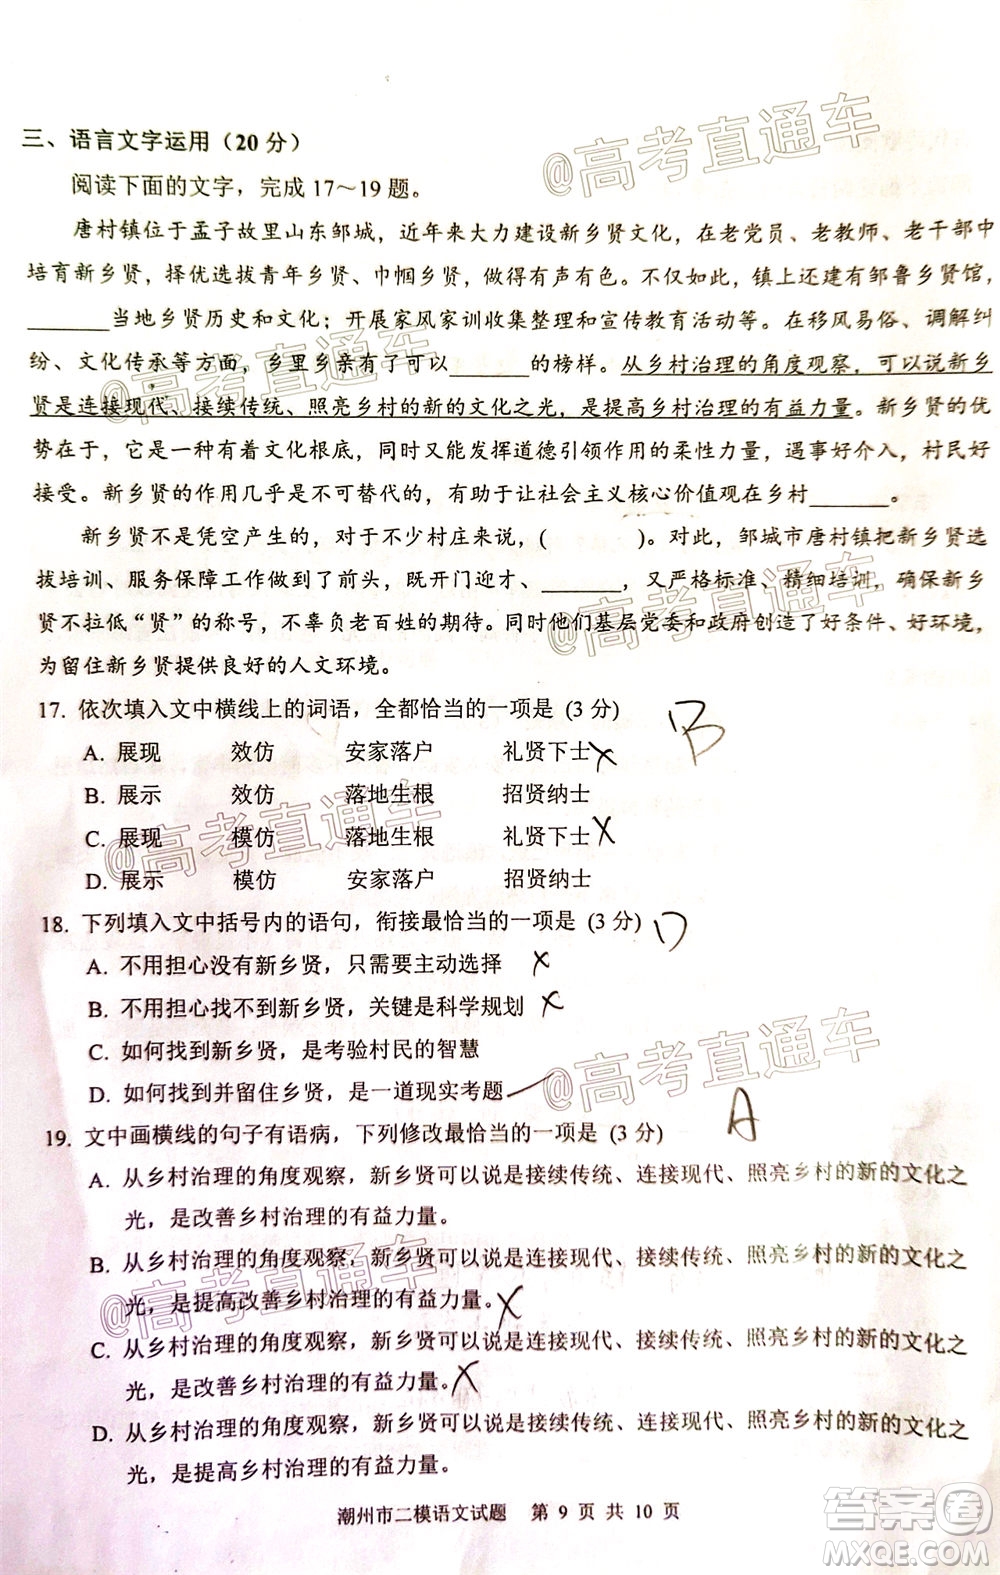 三、语言文字运用（20分）
阅读下面的文字，完成17～19题。
唐村镇位于孟子故里山东邹城，近年来大力建设新乡贤文化，在老党员、老教师、老干部中
培育新乡贤，择优选拔青年乡贤、巾帼乡贤，做得有声有色。不仅如此，镇上还建有邹鲁乡贤馆，
______当地乡贤历史和文化；开展家风家训收集整理和宣传教育活动等。在移风易俗、调解纠
纷、文化传承等方面，乡里乡亲有了可以______的榜样。从乡村治理的角度观察，可以说新乡
贤是连接现代、接续传统、照亮乡村的新的文化之光，是提高乡村治理的有益力量。新乡贤的优
势在于，它是一种有着文化根底，同时又能发挥道德引领作用的柔性力量，遇事好介入，村民好
接受。新乡贤的作用几乎是不可替代的，有助于让社会主义核心价值观在乡村______。
新乡贤不是凭空产生的，对于不少村庄来说，（　　）。对此，邹城市唐村镇把新乡贤选
拔培训、服务保障工作做到了前头，既开门迎才、______，又严格标准、精细培训，确保新乡
贤不拉低“贤”的称号，不辜负老百姓的期待。同时他们基层党委和政府创造了好条件、好环境，
为留住新乡贤提供良好的人文环境。
17. 依次填入文中横线上的词语，全都恰当的一项是 (3 分) B
A. 展现 效仿 安家落户 礼贤下士 ×
B. 展示 效仿 落地生根 招贤纳士
C. 展现 模仿 落地生根 礼贤下士 ×
D. 展示 模仿 安家落户 招贤纳士
18. 下列填入文中括号内的语句，衔接最恰当的一项是 (3 分) D
A. 不用担心没有新乡贤，只需要主动选择 ×
B. 不用担心找不到新乡贤，关键是科学规划 ×
C. 如何找到新乡贤，是考验村民的智慧
D. 如何找到并留住乡贤，是一道现实考题
19. 文中画横线的句子有语病，下列修改最恰当的一项是 (3 分) A
A. 从乡村治理的角度观察，新乡贤可以说是接续传统、连接现代、照亮乡村的新的文化之
光，是改善乡村治理的有益力量。
B. 从乡村治理的角度观察，新乡贤可以说是连接现代、接续传统、照亮乡村的新的文化之
光，是提高改善乡村治理的有益力量。×
C. 从乡村治理的角度观察，新乡贤可以说是连接现代、接续传统、照亮乡村的新的文化之
光，是改善乡村治理的有益力量。×
D. 从乡村治理的角度观察，新乡贤可以说是接续传统、连接现代、照亮乡村的新的文化之
光，是提高乡村治理的有益力量。
潮州市二模语文试题 第 9 页 共 10 页
@高考直通车
@高考直通车
@高考直通车
@高考直通车
@高考直通车
@高考直通车
@高考直通车
答案圈
MXQE.COM